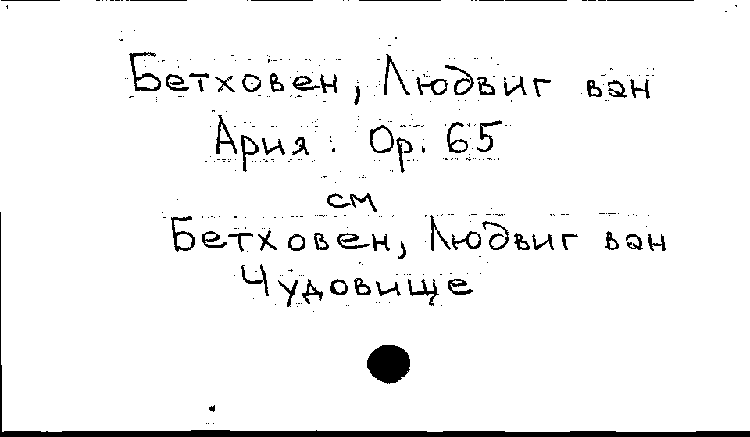 Бетховен, Людвиг ван
Ария. Op. 65
см
Бетховен, Людвиг ван
Чудовище